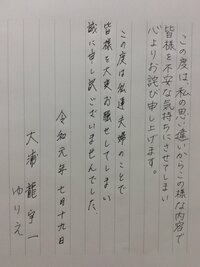 この度は、私の思い違いからこの様な内容で
皆様を不安な気持ちにさせてしまい
心よりお詫び申し上げます。
この度は私達夫婦のことで
皆様を大変お騒せしてしまい
誠に申し訳ございませんでした。
令和元年 七月十九日
大浦 龍宇一
ゆりえ